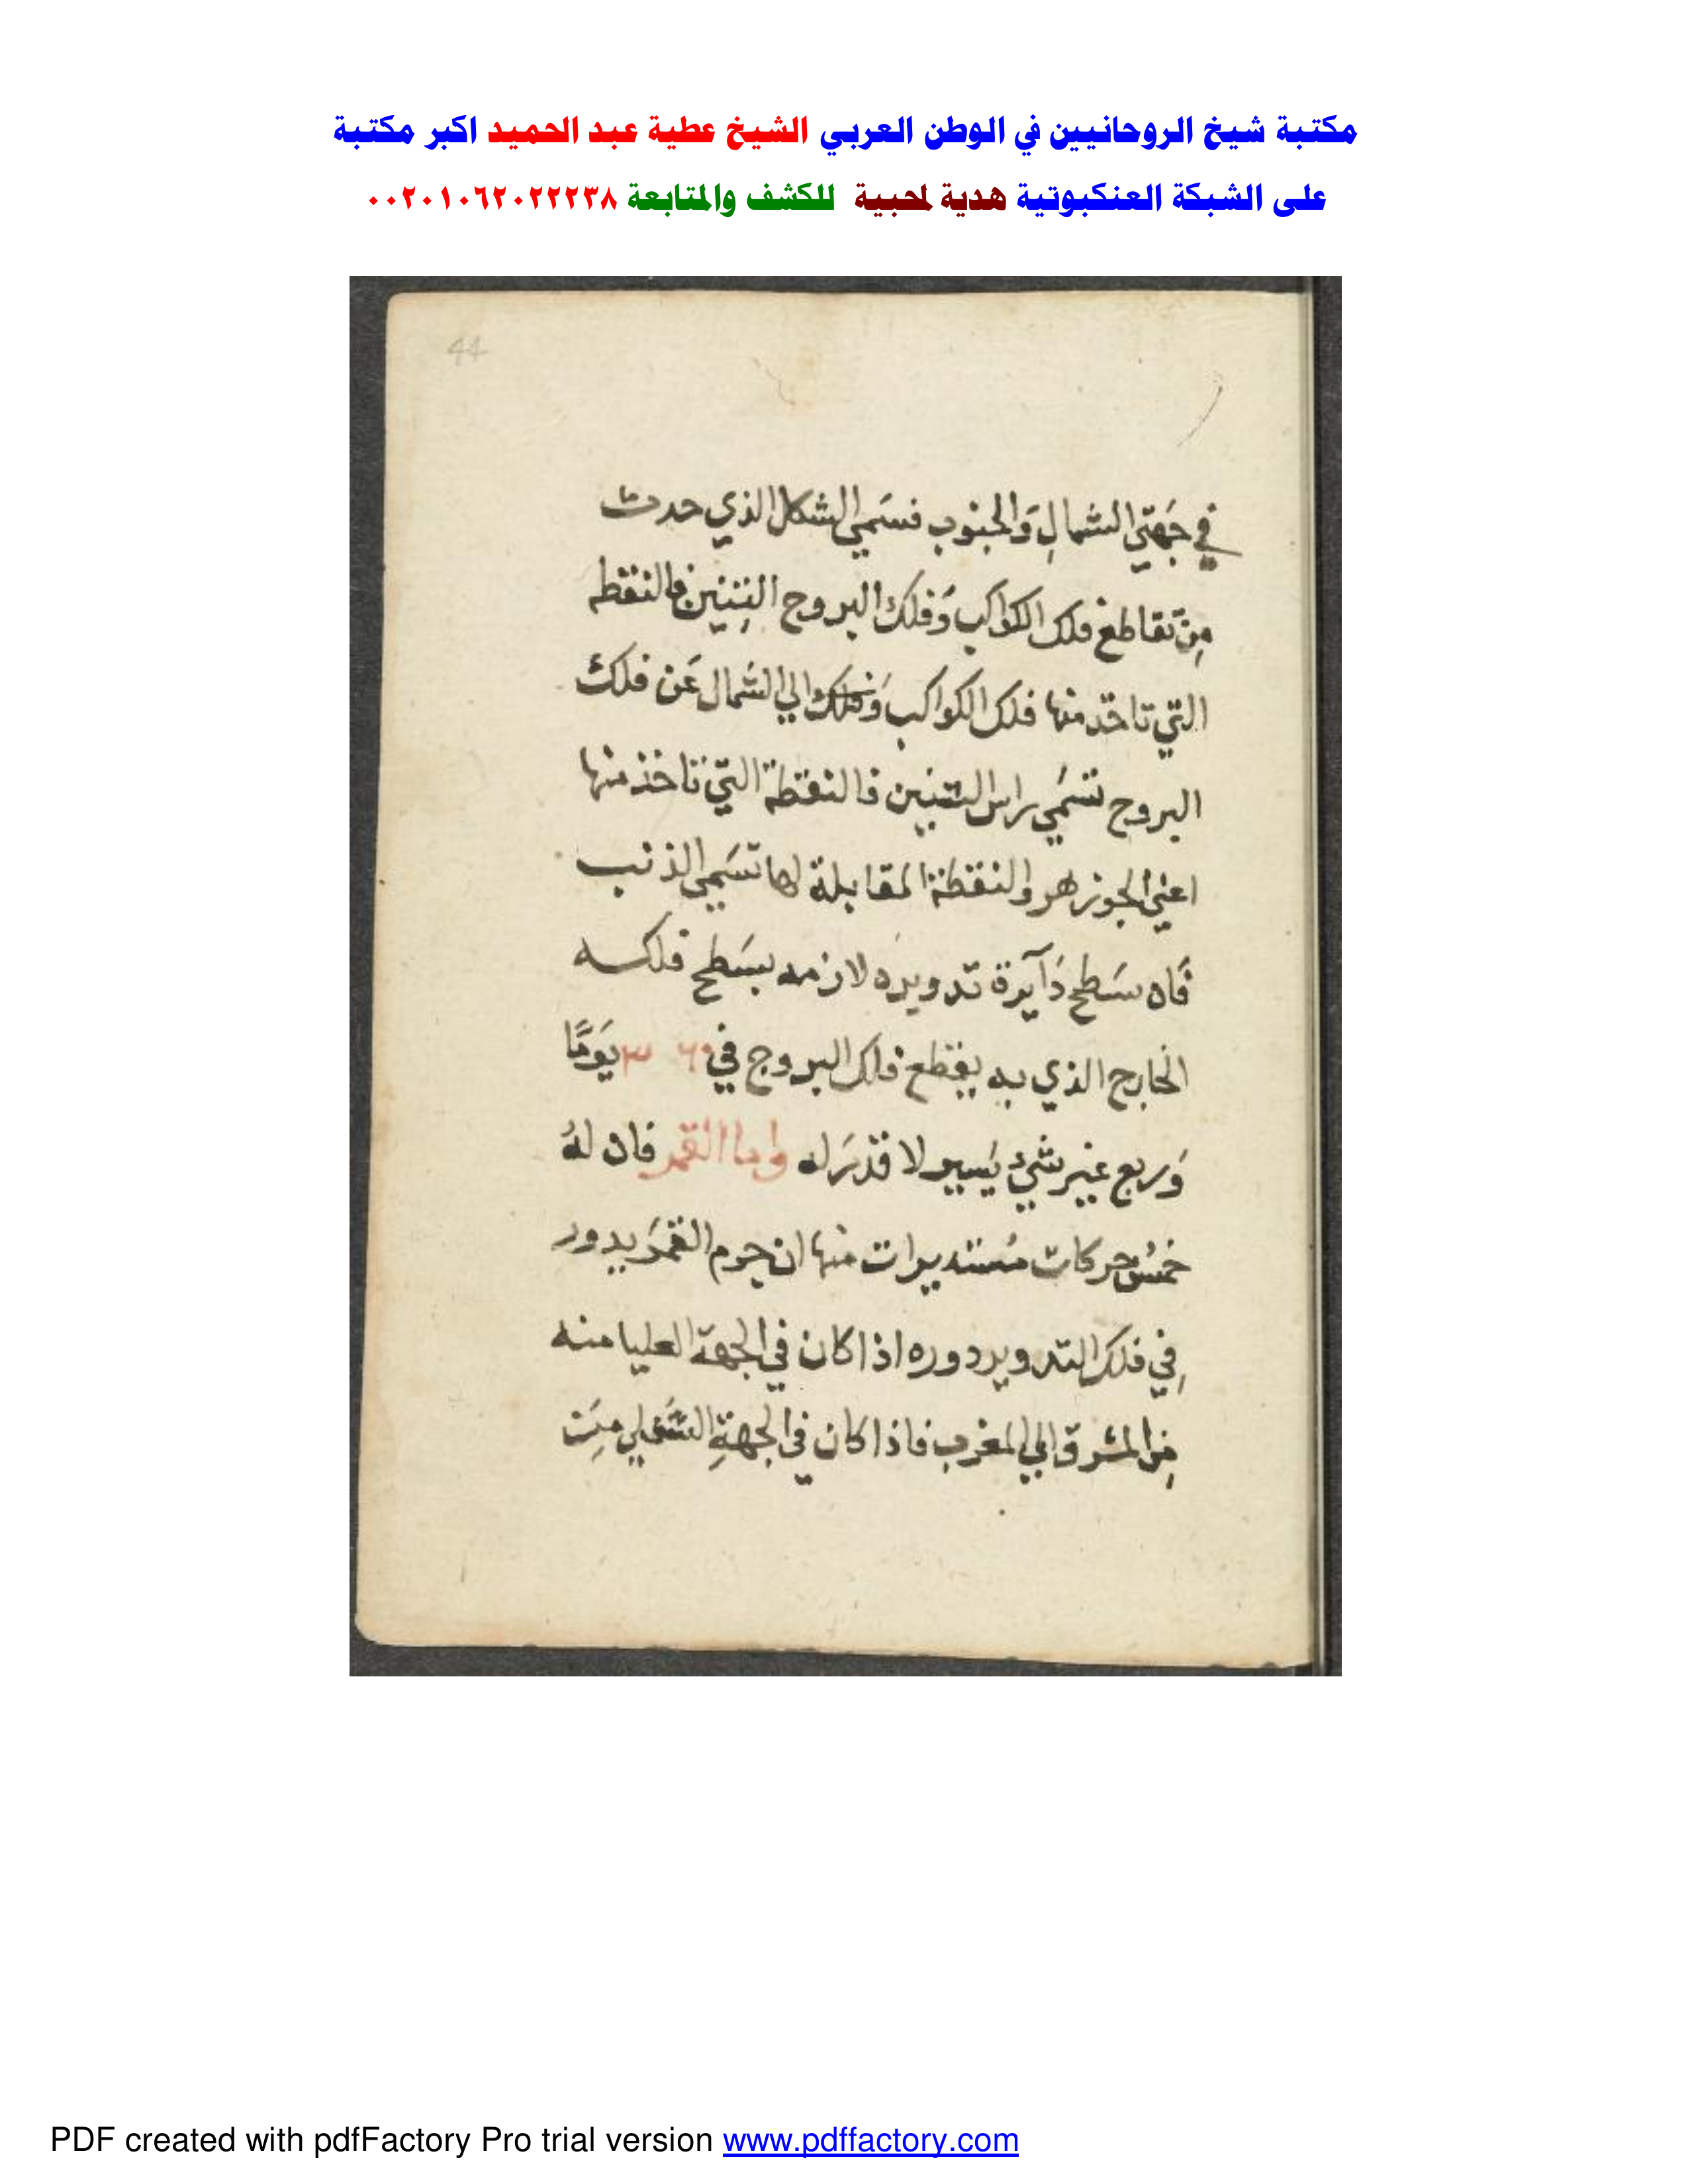 مكتبة شيخ الروحانيين في الوطن العربي الشيخ عطية عبد الحميد اكبر مكتبة
على الشبكة العنكبوتية هدية لمحبية للكشف والمتابعة ٠٠٢٠١٠٦٢٠٢٢٢٣٨
44
في جَهتي الشمالِ وَالجنوب فسَمي الشكل الذي حدث
مِن تقاطع فلك الكواكب وَفلك البروج التِنِين فالنقطه
التي تاخد منها فلك الكواكب الي الشمال عَن فلك
البروج تسَمي راس التنين فالنقطة التي تاخذ منها
اعني الجوزهر والنقطة المقابلة لها تسَمي الذنب
فَان سَطح دَآيرة تدويره لازمه بسَطح فلكه
الخارج الذي به يقطع فلك البروج في يَومًا
وَربع غير شيء يَسير لا قدرَ له واما القمر فان لهُ
خمسُ حركات مستديرات منها ان جرم القمَر يدور
فِي فلك التدوير دوره اذا كان في الجهة العليا منه
مِن المشرق الي المغرب فاذا كان في الجهةِ السَفلي مِنَ
PDF created with pdfFactory Pro trial version www.pdffactory.com